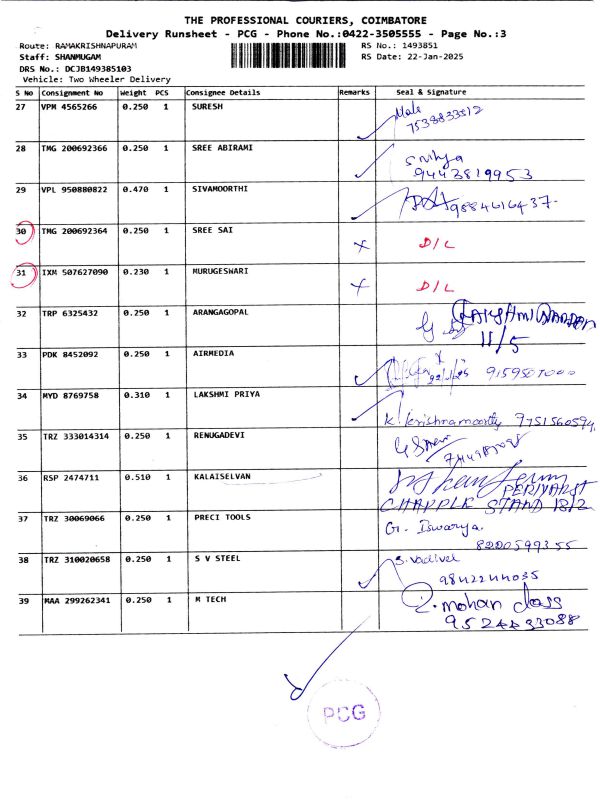 THE PROFESSIONAL COURIERS, COIMBATORE
Delivery Runsheet - PCG - Phone No.:0422-3505555 - Page No.:3
Route: RAMAKRISHNAPURAM RS No.: 1493851
Staff: SHANMUGAM RS Date: 22-Jan-2025
DRS No.: DCJB149385103
Vehicle: Two Wheeler Delivery
S No Consignment No Weight PCS Consignee Details Remarks Seal & Signature
27 VPM 4565266 0.250 1 SURESH
28 TMG 200692366 0.250 1 SREE ABIRAMI
9443819953
29 VPL 950880822 0.470 1 SIVAMOORTHI 9884616437
30 TMG 200692364 0.250 1 SREE SAI X D/L
31 IXM 507627090 0.230 1 MURUGESWARI X D/L
32 TRP 6325432 0.250 1 ARANGAGOPAL
11/5
33 PDK 8452092 0.250 1 AIRMEDIA
34 MYD 8769758 0.310 1 LAKSHMI PRIYA
K. Krishnamoorthy 9751560594
35 TRZ 333014314 0.250 1 RENUGADEVI
36 RSP 2474711 0.510 1 KALAISELVAN
STAND 18/2
37 TRZ 30069066 0.250 1 PRECI TOOLS G. Iswarya.
8220599355
38 TRZ 310020658 0.250 1 S V STEEL S. Vadivel
9842244035
39 MAA 299262341 0.250 1 M TECH mohan dass
9524833088
PCG